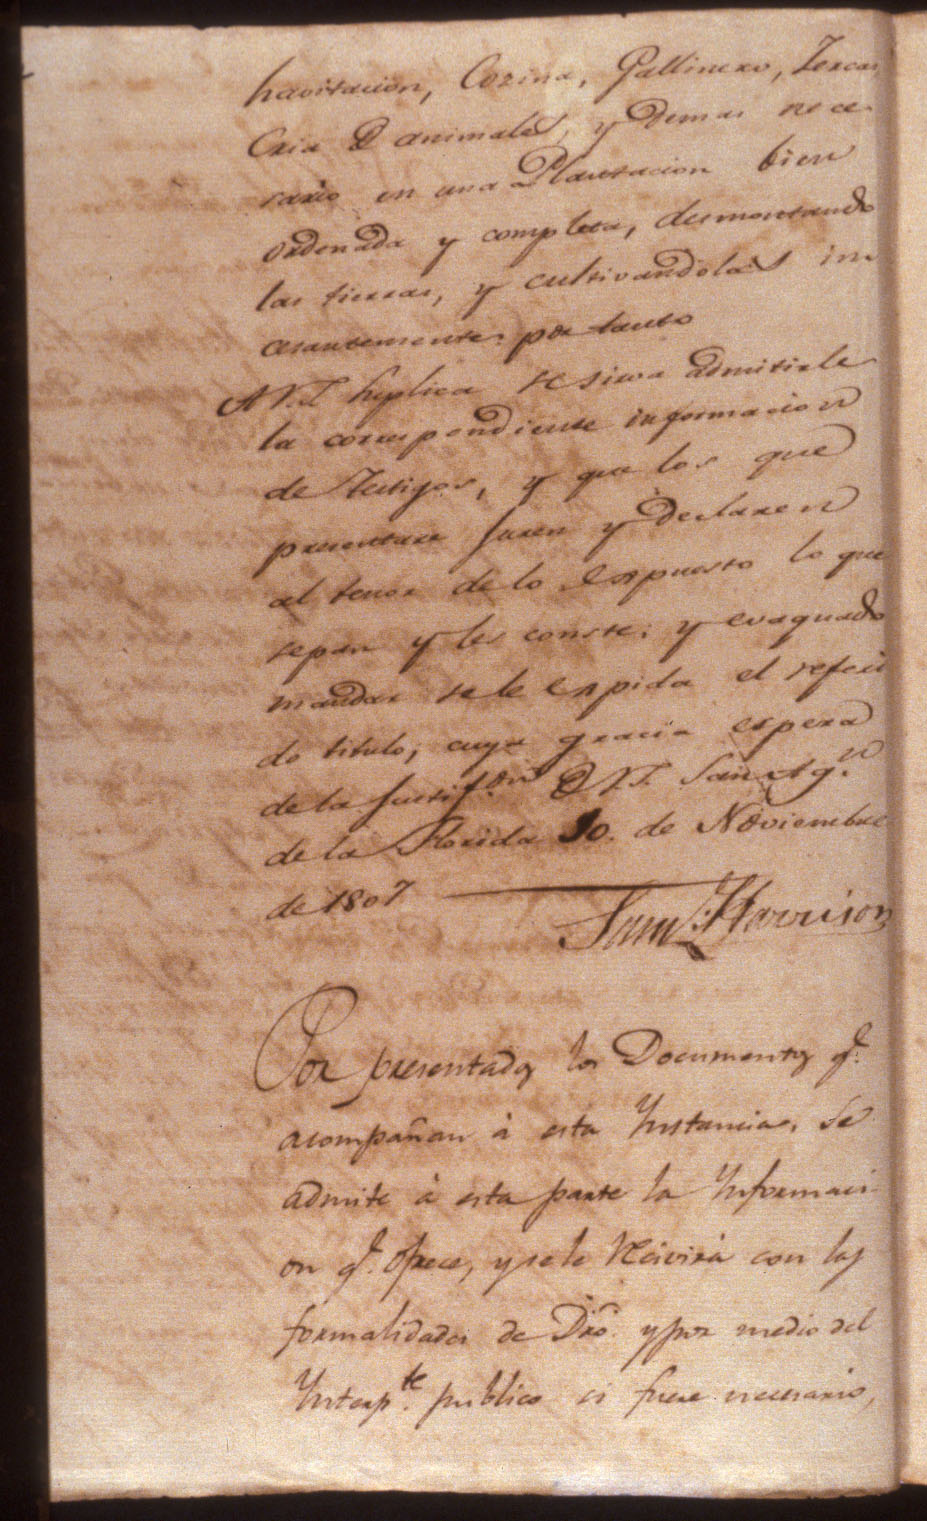 havitacion, Cozina, Gallinero, Zercas
Cria D animales, y demas nece
sario en una Plantacion bien
ordenada y completa, desmontando
las tierras, y cultivandolas in
cesantemente: por tanto
A V.S. suplica se sirva admitirle
la correspondiente informacion
de Testigos, y que los que
presentare juren y declaren
al tenor de lo expuesto lo que
sepan y les conste; y evaquado
mandar se le expida el referi
do titulo, cuya gracia espera
de la justif.on D V.S. San Ag.n
de la Florida 10. de Noviembre
de 1807
Sam.l Harrison
Por presentados los Documentos q.e
acompañan à esta Ynstancia, se
admite à esta parte la Ynformaci
on q.e ofrece, y se le recivirà con las
formalidades de Dro. y por medio del
Ynterp.te publico si fuere necesario,